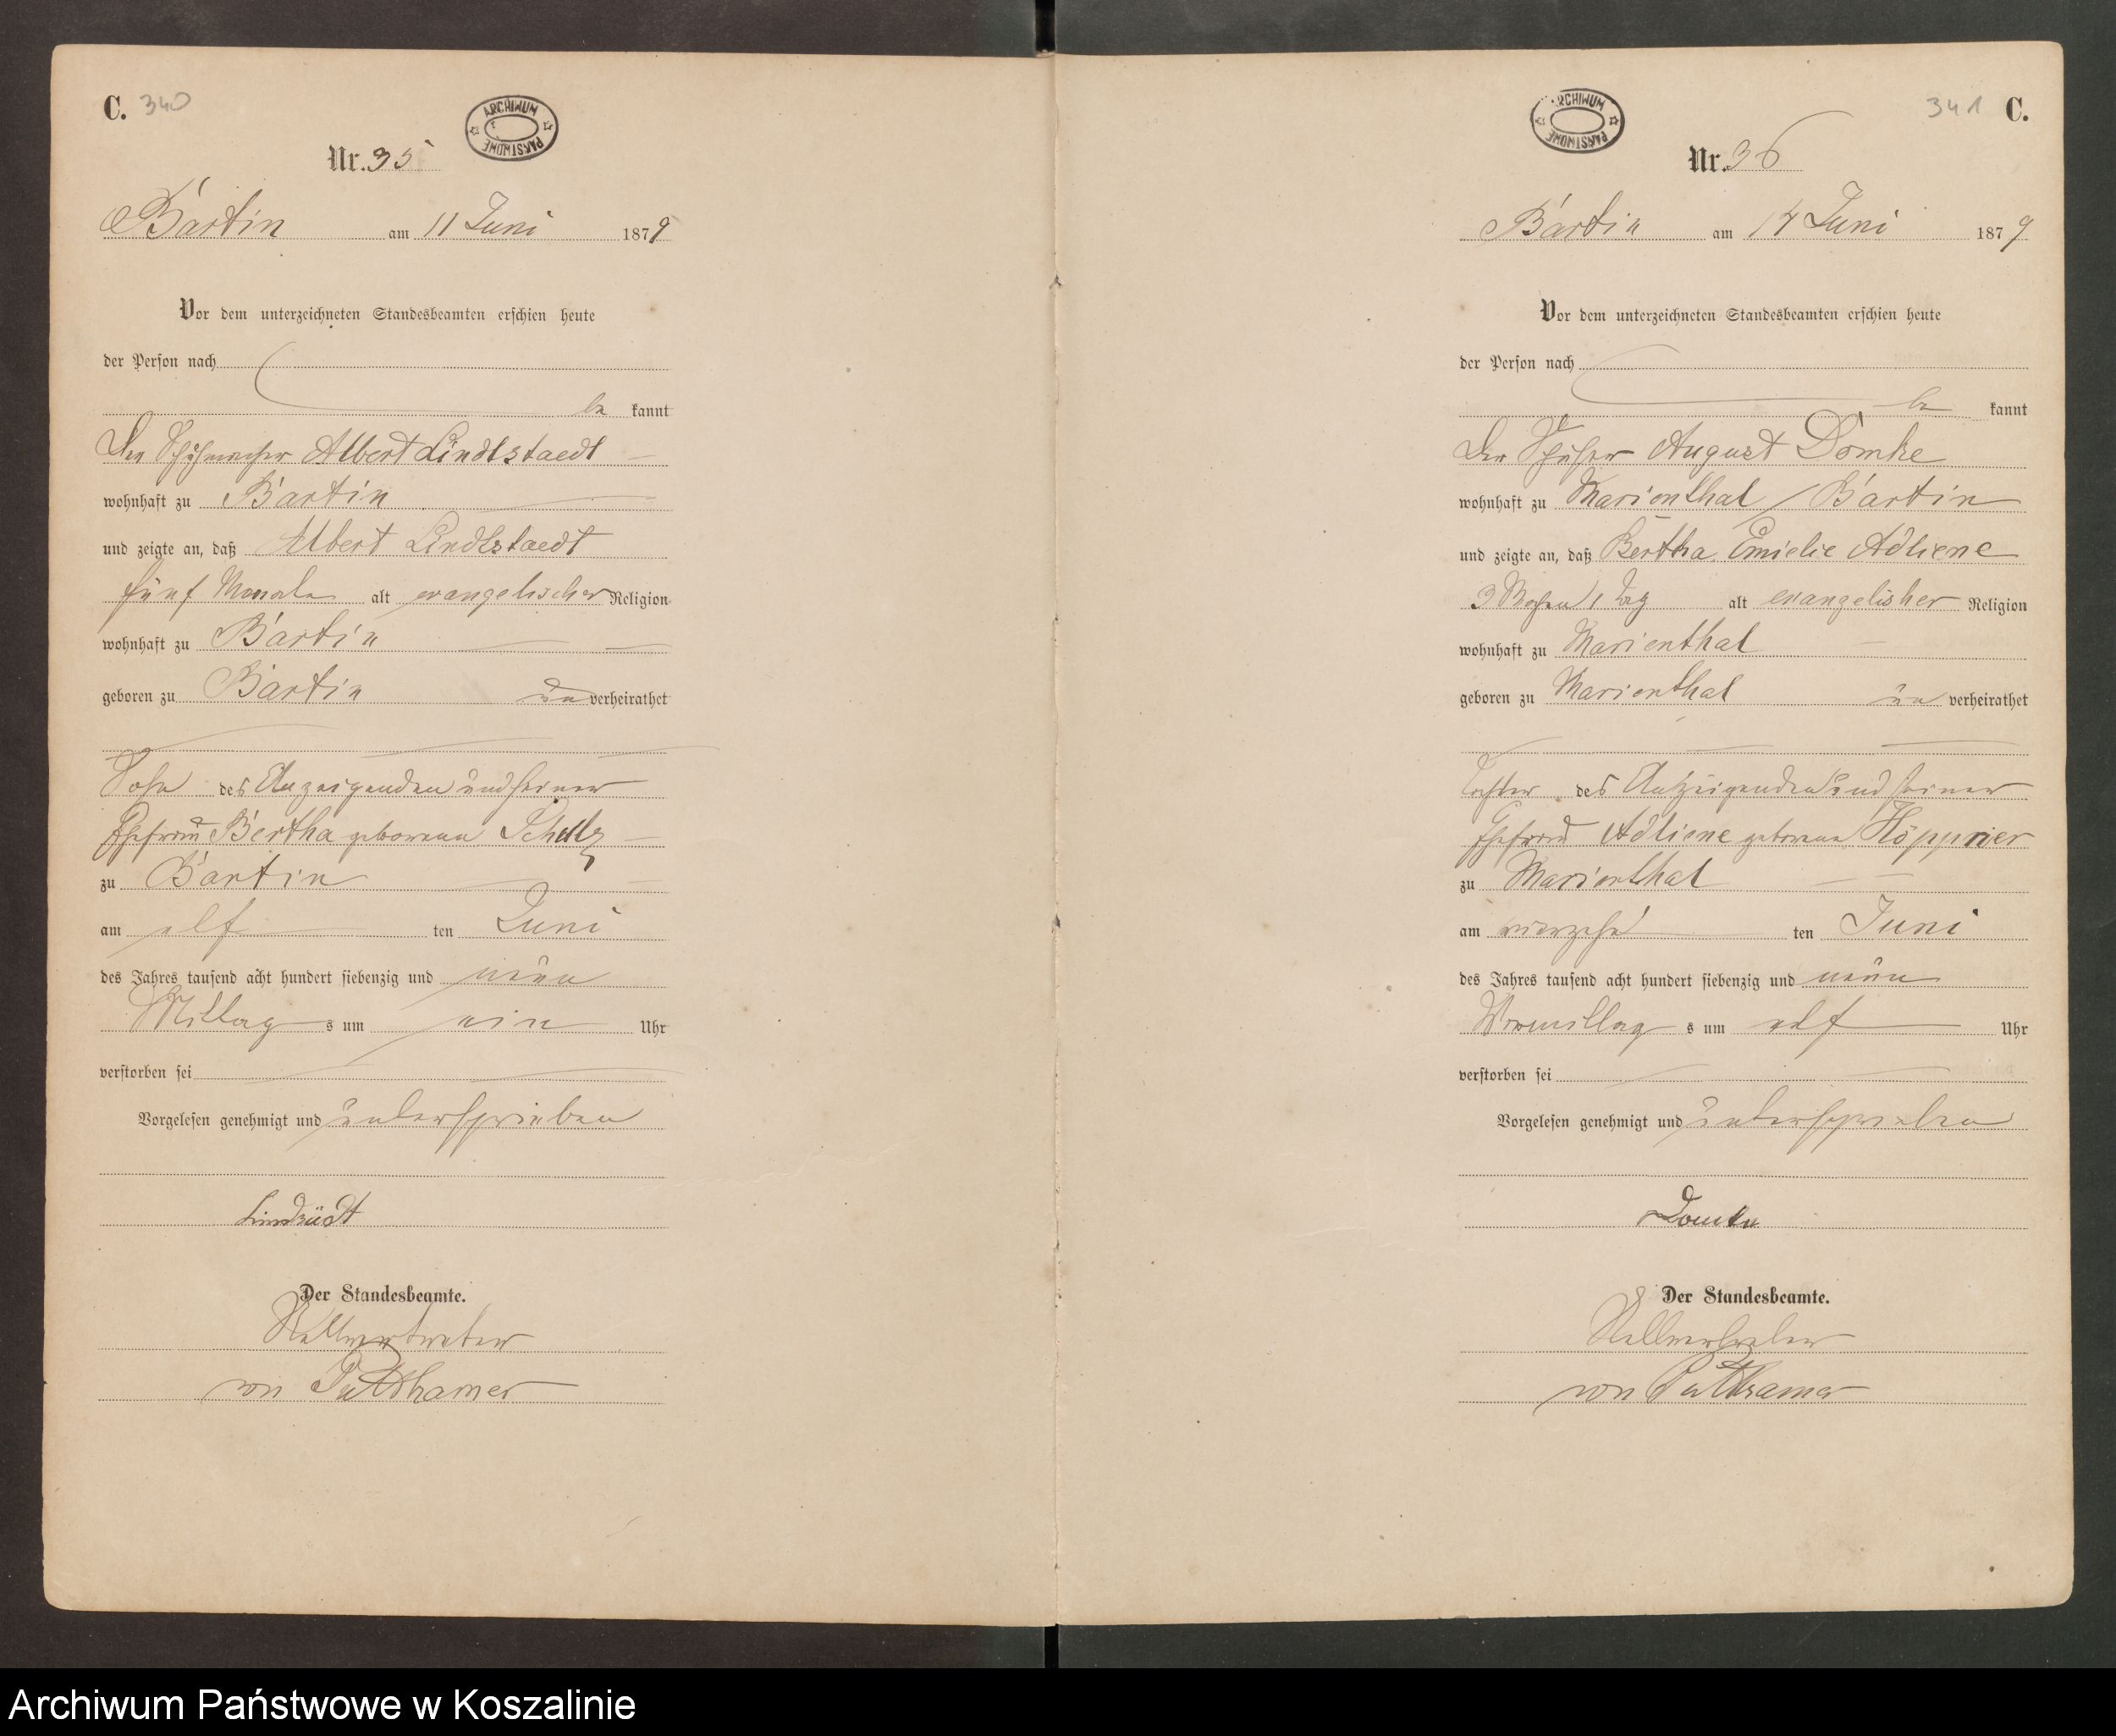 C. 340
ARCHIWUM PAŃSTWOWE
Nr. 35
Bartin am 11 Juni 1879
Vor dem unterzeichneten Standesbeamten erschien heute
der Person nach
be kannt
Der Schuhmacher Albert Lindtstaedt
wohnhaft zu Bartin
und zeigte an, daß Albert Lindtstaedt
fünf Monate alt evangelischer Religion
wohnhaft zu Bartin
geboren zu Bartin un verheirathet
Sohn des Anzeigenden und seiner
Ehefrau Bertha geborenen Schulz
zu Bartin
am elf ten Juni
des Jahres tausend acht hundert siebenzig und neun
Mittag s um ein Uhr
verstorben sei
Vorgelesen genehmigt und unterschrieben
Der Standesbeamte.
Stellvertreter
von Puttkamer
341 C.
ARCHIWUM PAŃSTWOWE
Nr. 36
Bartin am 14 Juni 1879
Vor dem unterzeichneten Standesbeamten erschien heute
der Person nach
be kannt
Der August Domke
wohnhaft zu Marienthal / Bartin
und zeigte an, daß Bertha Emielie Adliene
3 Wochen 1 Tag alt evangelisher Religion
wohnhaft zu Marienthal
geboren zu Marienthal un verheirathet
Tochter des Anzeigenden und seiner
Ehefrau Adliene geborenen Höppner
zu Marienthal
am vierzehn ten Juni
des Jahres tausend acht hundert siebenzig und neun
Vormittag s um elf Uhr
verstorben sei
Vorgelesen genehmigt und unterschrieben
Domke
Der Standesbeamte.
Stellvertreter
von Puttkamer
Archiwum Państwowe w Koszalinie